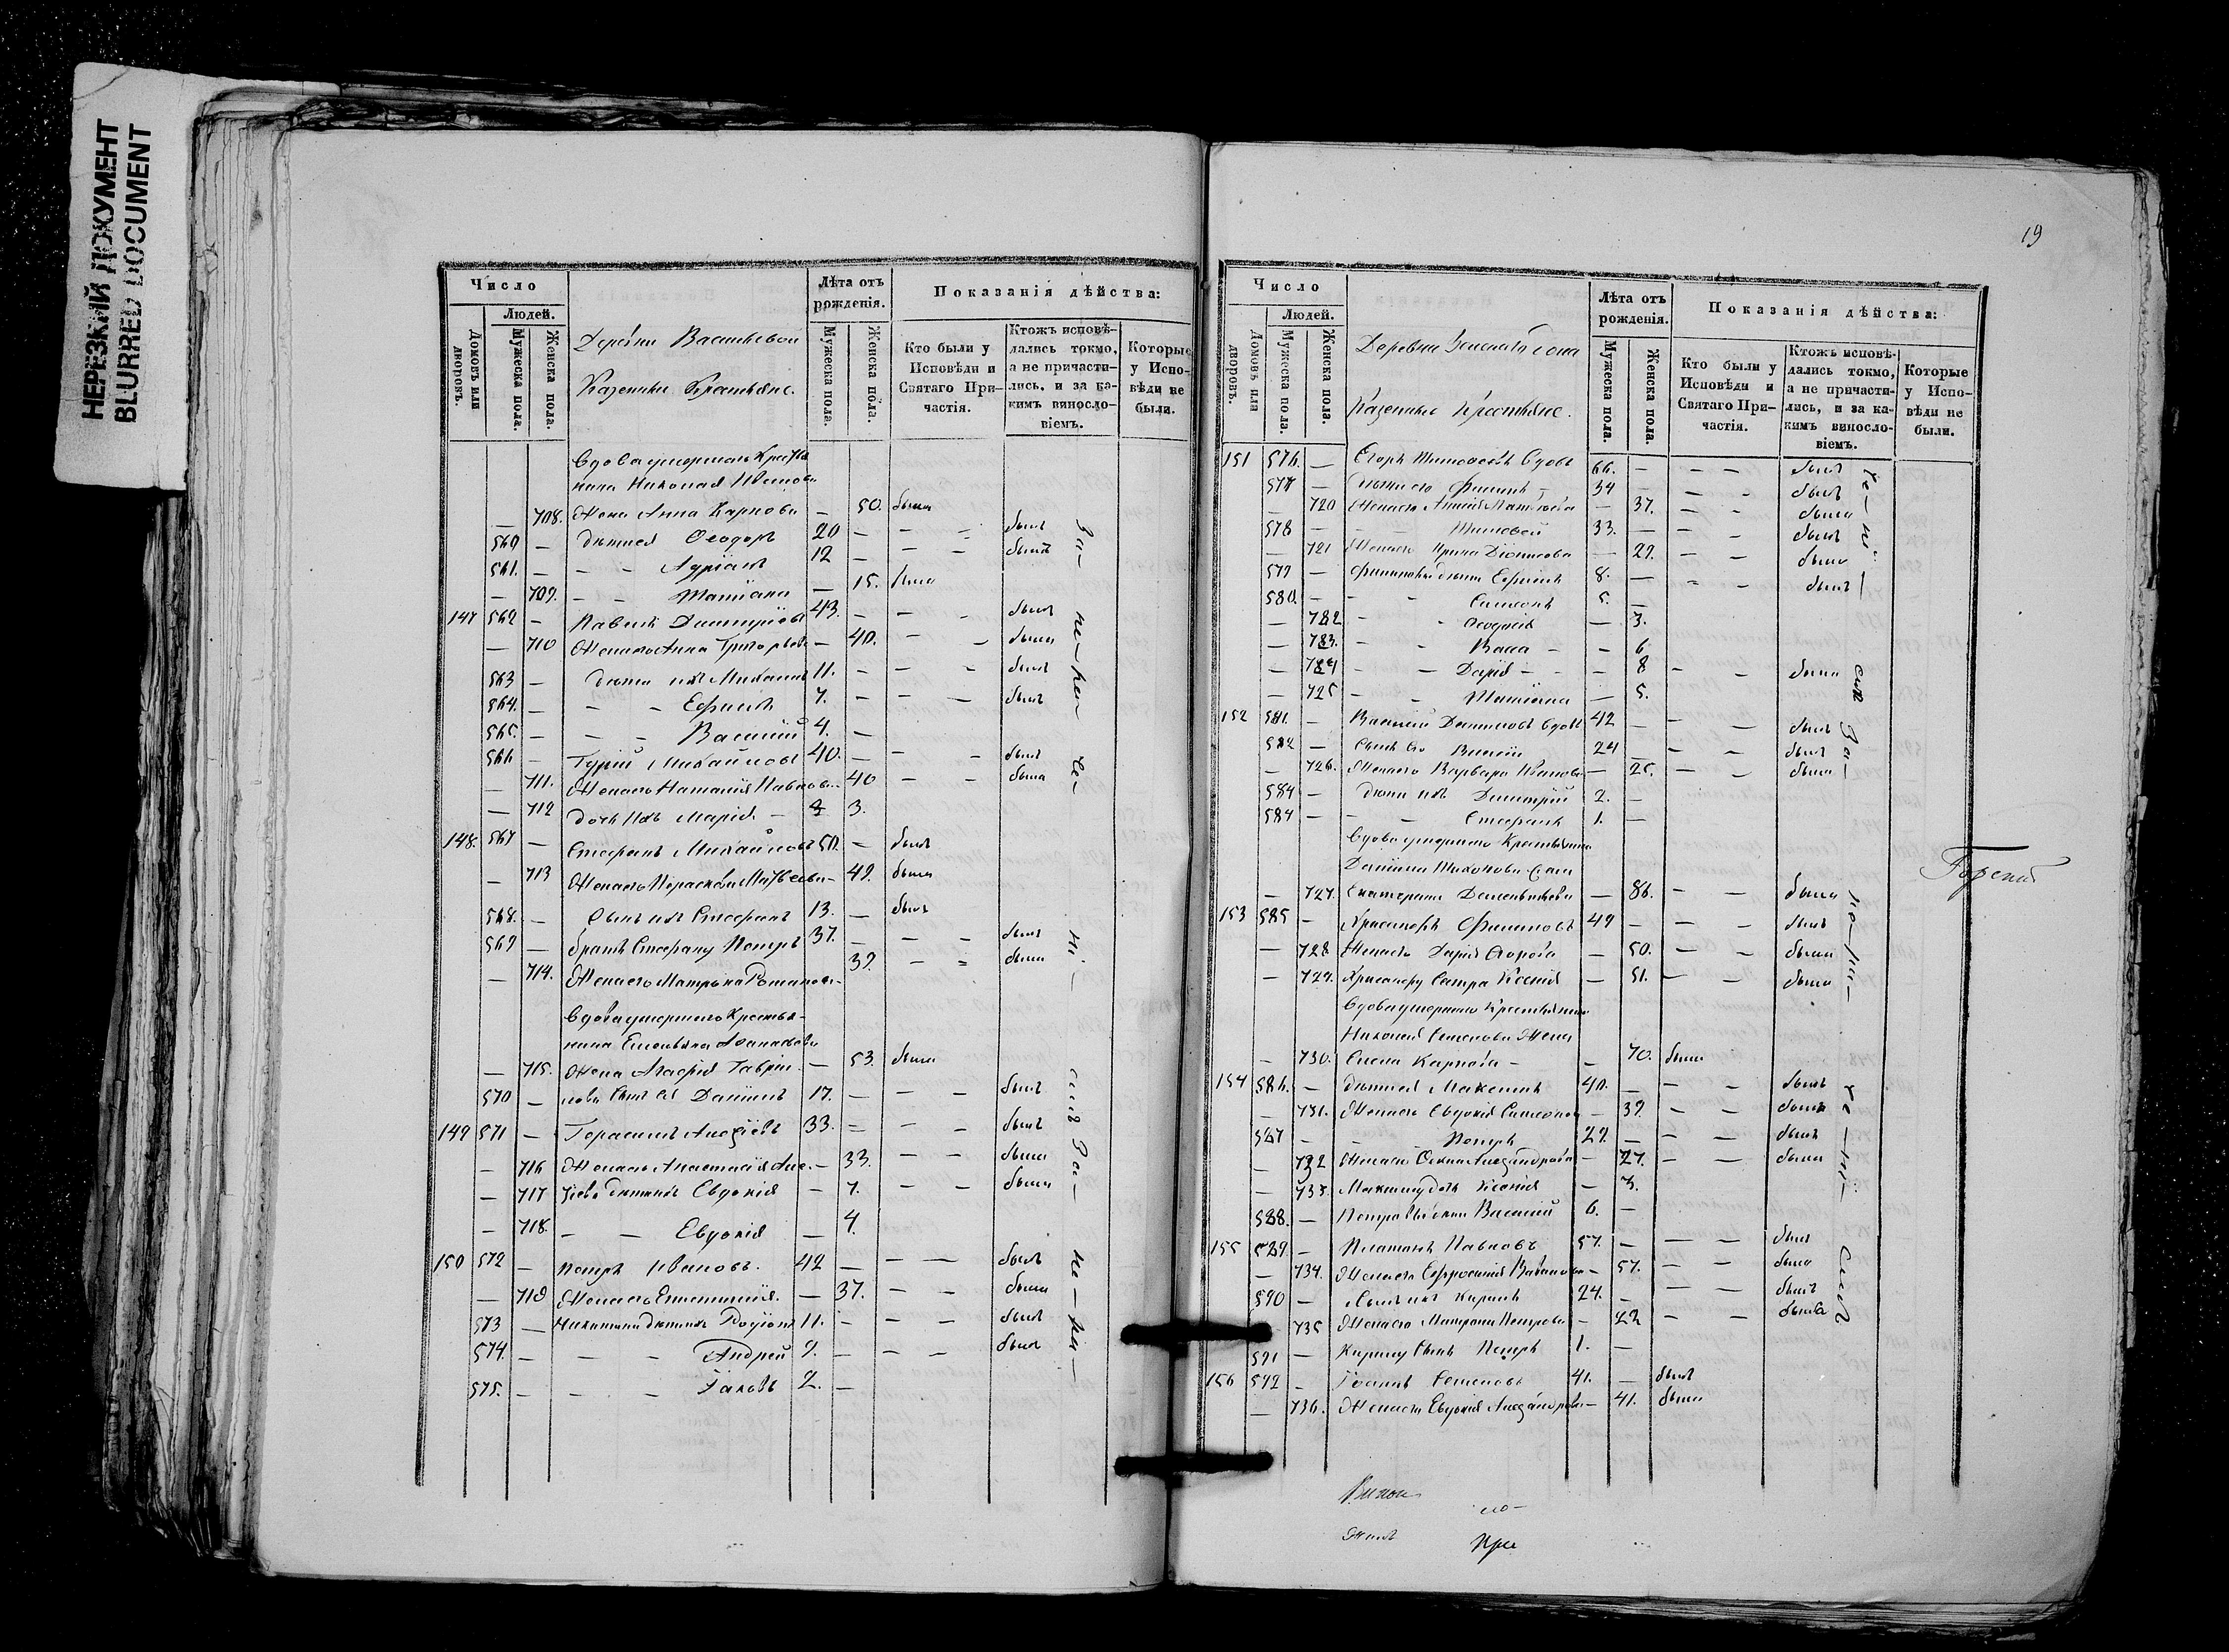 НЕРЕЗКИЙ ДОКУМЕНТ
BLURRED DOCUMENT
Число
Людей.
Домовъ или дворовъ.
Мужеска пола.
Женска пола.
Деревни
Казенные Крестьяне.
Лѣта отъ рожденія.
Мужеска пола.
Женска пола.
Показанія дѣйства:
Кто были у Исповѣди и Святаго Причастія.
Ктожъ исповѣдались токмо, а не причастились, и за какимъ винословіемъ.
Которые у Исповѣди не были.
Вдова умершаго Крестья
нина Николая Иванова
708. Жена Анна Карпова — 50. была
560 — дѣти ея Ѳеодоръ 20 — — - былъ
561. — - - Адріанъ 12 — — - былъ
— 709. - - Татіана — 15. была
147 562 — Павелъ Димитріевъ 43. — - - былъ
— 710 Жена его Анна Григорьева — 40. - - была
563 — дѣти ихъ Михаилъ 11. — — - былъ
564. — - - Ефимъ 7. — - — былъ
565. — - - Василій 4. —
566 — Гурій Михайловъ 40. — — - былъ
— 711. Жена его Наталія Павлова — 40 - - была
— 712 дочь ихъ Марія — 3.
148. 567 — Стефанъ Михайловъ 50. — былъ
— 713 Жена его Параскева Матвеева — 49. была
568. — Сынъ ихъ Стефанъ 13. — былъ
569 — братъ Стефану Петръ 37. — - - былъ
— 714. Жена его Матрона Романова — 39. - - была
Вдова умершаго Крестья-
нина
— 715. Жена Агафія Гаврі — 53. была
570 — лова Сынъ ея Даніилъ 17. — — — былъ
149 571 — Герасимъ Алексіевъ 33. — - - былъ
— 716 Жена его Анастасія Але — 33. — - была
— 717 ксіева дѣти ихъ Евдокія — 7. - — была
— 718. — — Евдокія — 4.
150 572 — Петръ Ивановъ. 42 — — — былъ
— 719 Жена его — 37. — - была
573 — дѣти ихъ Родіонъ 11. — - - былъ
574. — - - Андрей 9. — — — былъ
575. — - - Іаковъ 2. —
19
Число
Людей.
Домовъ или дворовъ.
Мужеска пола.
Женска пола.
Деревни
Казенные Крестьяне.
Лѣта отъ рожденія.
Мужеска пола.
Женска пола.
Показанія дѣйства:
Кто были у Исповѣди и Святаго Причастія.
Ктожъ исповѣдались токмо, а не причастились, и за какимъ винословіемъ.
Которые у Исповѣди не были.
151 576. — Егоръ Тимофеевъ вдовъ 66. — — - былъ
577 — Сынъ его Филипъ 34 — - - былъ
720 Жена его — 37. — - была
578 — - Тимофей 33. — — - былъ
— 721 Жена его Ирина Діонисова — 29. - - была
579 — Филиповы дѣти Ефимъ 8. — - - былъ
580. — - - Симеонъ 5. —
— 722 - - Ѳеодосія — 3.
— 723. - - Васса — 6
— 724 - - Дарія — 8 - - была
— 725 - - Татіана — 5.
152 581. — Василій Даниловъ вдовъ 42 — — — былъ
582 — Сынъ его 24 — — — былъ
— 726. Жена его Варвара Иванова — 25. — - была
584 — дѣти ихъ Димитрій 2. —
584 — - - Стефанъ 1. —
Вдова умершаго Крестьянина
Даніила Тихонова
— 727. Екатерина — 86. — — была
153 585 — Хрисанфъ Филиповъ 49 — — - былъ
— 728 Жена его Дарія — 50. — - была
— 729. Хрисанфу Сестра Ксенія — 51. — - была
Вдова умершаго Крестьянина
Николая Семенова Жена
— 730. Елена Карпова — 70. была
154 586. — дѣти ея Максимъ 40. — — - былъ
— 731. Жена его Евдокія Симеонова — 39. — - была
587 — - Петръ 29. — — — былъ
— 732 Жена его Александрова — 27. — — была
— 733. Максиму дочь Ксенія — 3.
588. — Петровъ сынъ Василій 6. —
155 589. — Платонъ Павловъ 57. — — - былъ
— 734. Жена его Ефросинія — 57. — - была
590 — Сынъ ихъ Кирилъ 24. — — — былъ
735 Жена его Матрона Петрова — 22 — — была
591 — Кирилу Сынъ Петръ 1. —
156 592 — Іоаннъ Семеновъ 41. — былъ
— 736. Жена его Евдокія Александрова — 41. была